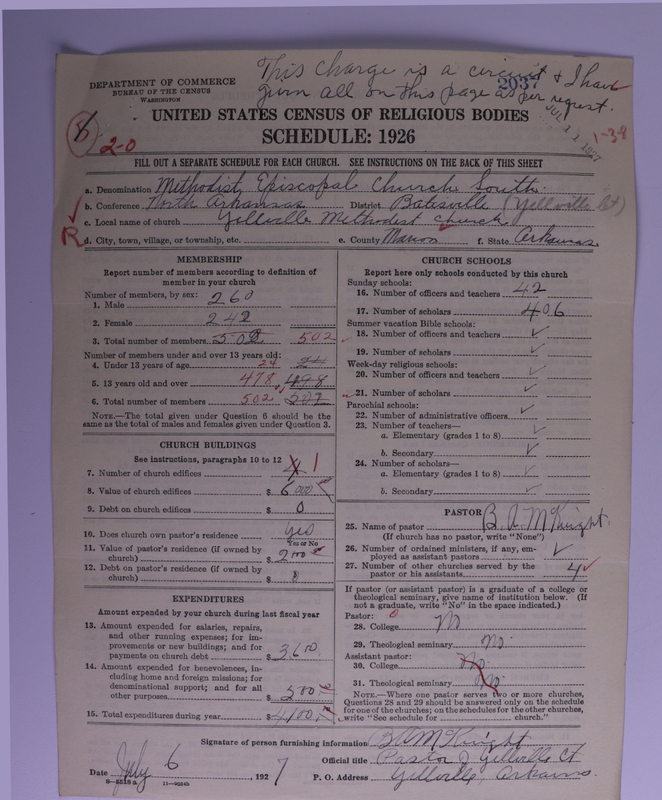 This Charge is a circuit & I have
given all on this page as per request.
2037
JUL 11 1927
DEPARTMENT OF COMMERCE
BUREAU OF THE CENSUS
WASHINGTON
UNITED STATES CENSUS OF RELIGIOUS BODIES
SCHEDULE: 1926
6
2-0
1-3-8
FILL OUT A SEPARATE SCHEDULE FOR EACH CHURCH. SEE INSTRUCTIONS ON THE BACK OF THIS SHEET
a. Denomination Methodist Episcopal Church South
b. Conference North Arkansas District Batesville (Yellville Ct)
c. Local name of church Yellville Methodist Church
R d. City, town, village, or township, etc. e. County Marion f. State Arkansas
MEMBERSHIP
Report number of members according to definition of
member in your church
Number of members, by sex:
1. Male 260
2. Female 242
3. Total number of members 502 502
Number of members under and over 13 years old:
4. Under 13 years of age 24
5. 13 years old and over 478 498
6. Total number of members 502
NOTE.—The total given under Question 6 should be the
same as the total of males and females given under Question 3.
CHURCH BUILDINGS
See instructions, paragraphs 10 to 12
7. Number of church edifices 4 1
8. Value of church edifices $ 6000
9. Debt on church edifices $ 0
10. Does church own pastor's residence yes
Yes or No
11. Value of pastor's residence (if owned by
church) $ 2000
12. Debt on pastor's residence (if owned by
church) $ 0
EXPENDITURES
Amount expended by your church during last fiscal year
13. Amount expended for salaries, repairs,
and other running expenses; for im-
provements or new buildings; and for
payments on church debt $ 3600
14. Amount expended for benevolences, in-
cluding home and foreign missions; for
denominational support; and for all
other purposes $ 500
15. Total expenditures during year $ 4100
CHURCH SCHOOLS
Report here only schools conducted by this church
Sunday schools:
16. Number of officers and teachers 42
17. Number of scholars 406
Summer vacation Bible schools:
18. Number of officers and teachers ✓
19. Number of scholars ✓
Week-day religious schools:
20. Number of officers and teachers ✓
21. Number of scholars ✓
Parochial schools:
22. Number of administrative officers ✓
23. Number of teachers—
a. Elementary (grades 1 to 8) ✓
b. Secondary ✓
24. Number of scholars—
a. Elementary (grades 1 to 8) ✓
b. Secondary ✓
PASTOR
25. Name of pastor B. A. McKnight
(If church has no pastor, write "None")
26. Number of ordained ministers, if any, em-
ployed as assistant pastors ✓
27. Number of other churches served by the
pastor or his assistants 4
If pastor (or assistant pastor) is a graduate of a college or
theological seminary, give name of institution below. (If
not a graduate, write "No" in the space indicated.)
Pastor:
28. College No
29. Theological seminary No
Assistant pastor:
30. College No
31. Theological seminary No
NOTE.—Where one pastor serves two or more churches,
Questions 28 and 29 should be answered only on the schedule
for one of the churches; on the schedules for the other churches,
write "See schedule for church."
Signature of person furnishing information B A McKnight
Official title Pastor of Yellville Ct
Date July 6, 1927 P. O. Address Yellville, Arkansas.